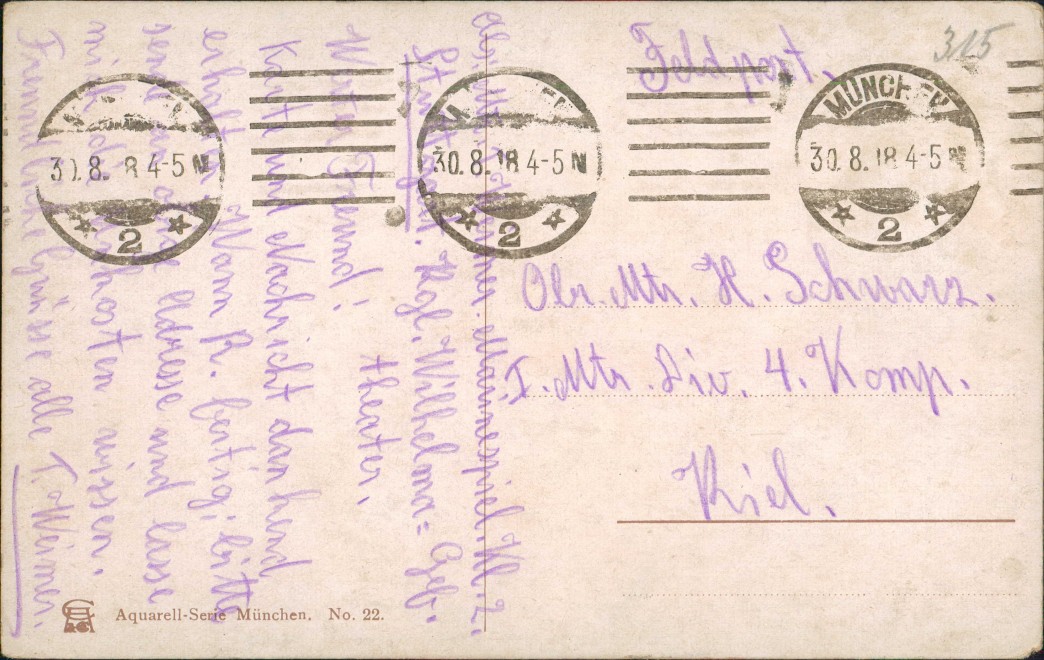 Feldpost.
315
MÜNCHEN
30.8.18 4-5 N
2
30.8.18 4-5 N
2
30.8. 8 4-5 N
2
Obr. Mtr. H. Schwarz.
I. Mtr. Div. 4. Komp.
Kiel.
Weimer. Marinespiel. Kl. 2.
Stuttgart. Kgl. Wilhelma=
theater.
Werter Freund!
Karte und Nachricht dankend
erhalten. Wann R. fertig, bitte
sende an obige Adresse und lasse
mich die Unkosten wissen.
Freundliche Grüsse alle T. Weimer.
Aquarell-Serie München. No. 22.